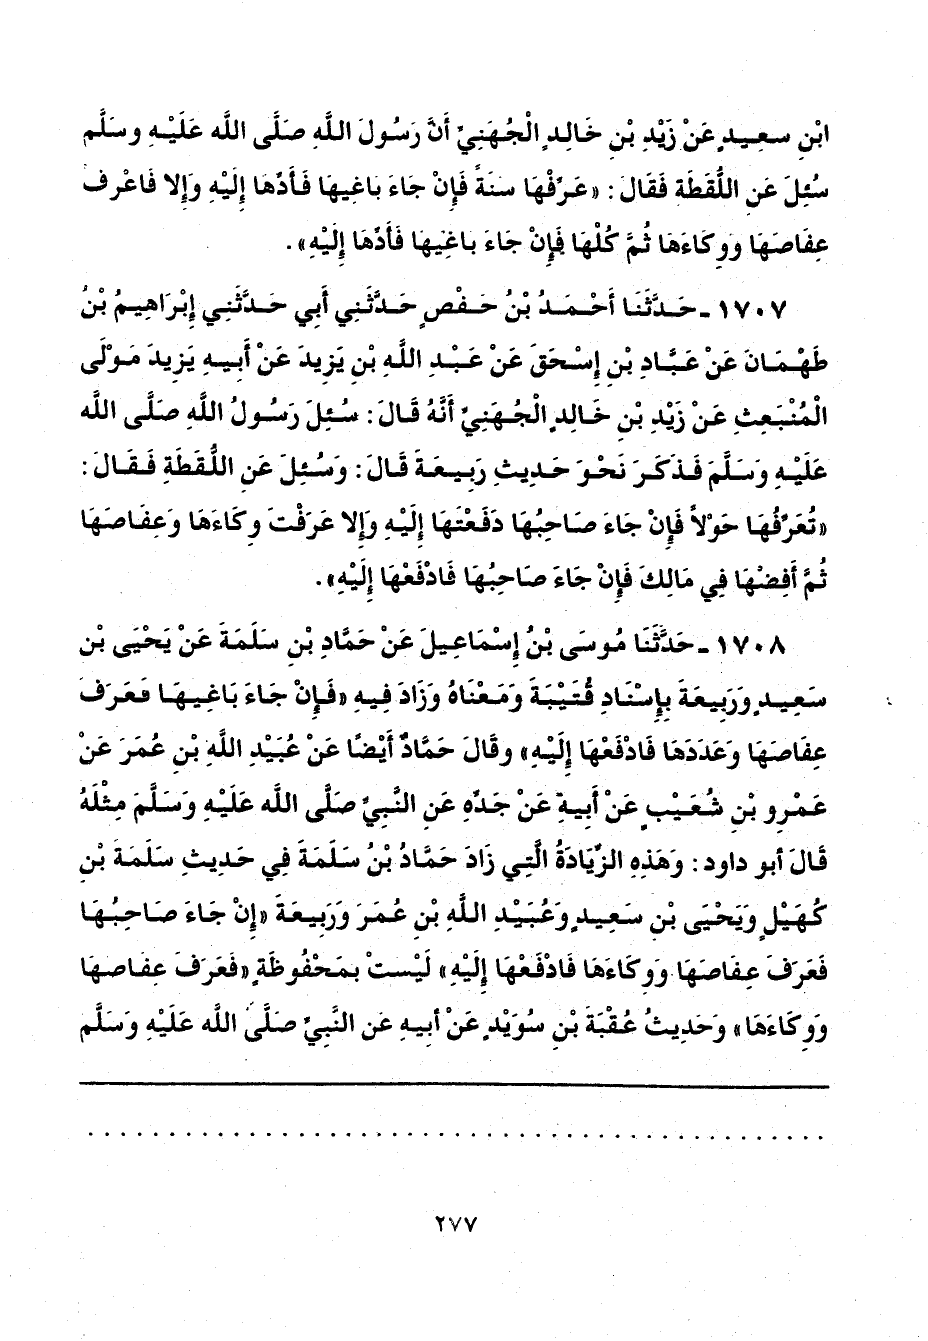 ابْنِ سعيدٍ عَنْ زَيْدِ بْنِ خَالِدٍ الْجُهَنِيِّ أَنَّ رَسُولَ اللَّهِ صَلَّى اللَّه عَلَيْهِ وسَلَّم
سُئِلَ عَنِ اللُّقَطَةِ فَقَالَ: «عَرِّفْهَا سنَةً فَإِنْ جَاءَ بَاغِيهَا فَأَدِّهَا إِلَيْهِ وَإِلا فَاعْرِف
عِفَاصَهَا وَوِكَاءَهَا ثُمَّ كُلْهَا فَإِنْ جَاءَ بَاغِيهَا فَأَدِّهَا إِلَيْهِ».
١٧٠٧ - حَدَّثَنَا أَحْمَدُ بْنُ حَفْصٍ حَدَّثَنِي أَبِي حَدَّثَنِي إِبْرَاهِيمُ بْنُ
طَهْمَانَ عَنْ عَبَّادِ بْنِ إِسْحَقَ عَنْ عَبْدِ اللَّهِ بْنِ يَزِيدَ عَنْ أَبِيهِ يَزِيدَ مَوْلَى
الْمُنْبَعِثِ عَنْ زَيْدِ بْنِ خَالِدٍ الْجُهَنِيِّ أَنَّهُ قَالَ: سُئِلَ رَسُولُ اللَّهِ صَلَّى اللَّه
عَلَيْهِ وَسَلَّمَ فَذَكَرَ نَحْوَ حَدِيثِ رَبِيعَةَ قَالَ: وَسُئِلَ عَنِ اللُّقَطَةِ فَقَالَ:
«تُعَرِّفُهَا حَوْلاً فَإِنْ جَاءَ صَاحِبُهَا دَفَعْتَهَا إِلَيْهِ وَإِلا عَرَفْتَ وِكَاءَهَا وَعِفَاصَهَا
ثُمَّ أَفِضْهَا فِي مَالِكَ فَإِنْ جَاءَ صَاحِبُهَا فَادْفَعْهَا إِلَيْهِ».
١٧٠٨ - حَدَّثَنَا مُوسَى بْنُ إِسْمَاعِيلَ عَنْ حَمَّادِ بْنِ سَلَمَةَ عَنْ يَحْيَى بْنِ
سَعِيدٍ وَرَبِيعَةَ بِإِسْنَادِ قُتَيْبَةَ وَمَعْنَاهُ وَزَادَ فِيهِ «فَإِنْ جَاءَ بَاغِيهَا فَعَرَفَ
عِفَاصَهَا وَعَدَدَهَا فَادْفَعْهَا إِلَيْهِ» وقَالَ حَمَّادٌ أَيْضًا عَنْ عُبَيْدِ اللَّهِ بْنِ عُمَرَ عَنْ
عَمْرِو بْنِ شُعَيْبٍ عَنْ أَبِيهِ عَنْ جَدِّهِ عَنِ النَّبِيِّ صَلَّى اللَّه عَلَيْهِ وَسَلَّمَ مِثْلَهُ
قَالَ أبو داود: وَهَذِهِ الزِّيَادَةُ الَّتِي زَادَ حَمَّادُ بْنُ سَلَمَةَ فِي حَدِيثِ سَلَمَةَ بْنِ
كُهَيْلٍ وَيَحْيَى بْنِ سَعِيدٍ وَعُبَيْدِ اللَّهِ بْنِ عُمَرَ وَرَبِيعَةَ «إِنْ جَاءَ صَاحِبُهَا
فَعَرَفَ عِفَاصَهَا وَوِكَاءَهَا فَادْفَعْهَا إِلَيْهِ» لَيْسَتْ بِمَحْفُوظَةٍ «فَعَرَفَ عِفَاصَهَا
وَوِكَاءَهَا» وَحَدِيثُ عُقْبَةَ بْنِ سُوَيْدٍ عَنْ أَبِيهِ عَنِ النَّبِيِّ صَلَّى اللَّه عَلَيْهِ وَسَلَّم
٢٧٧